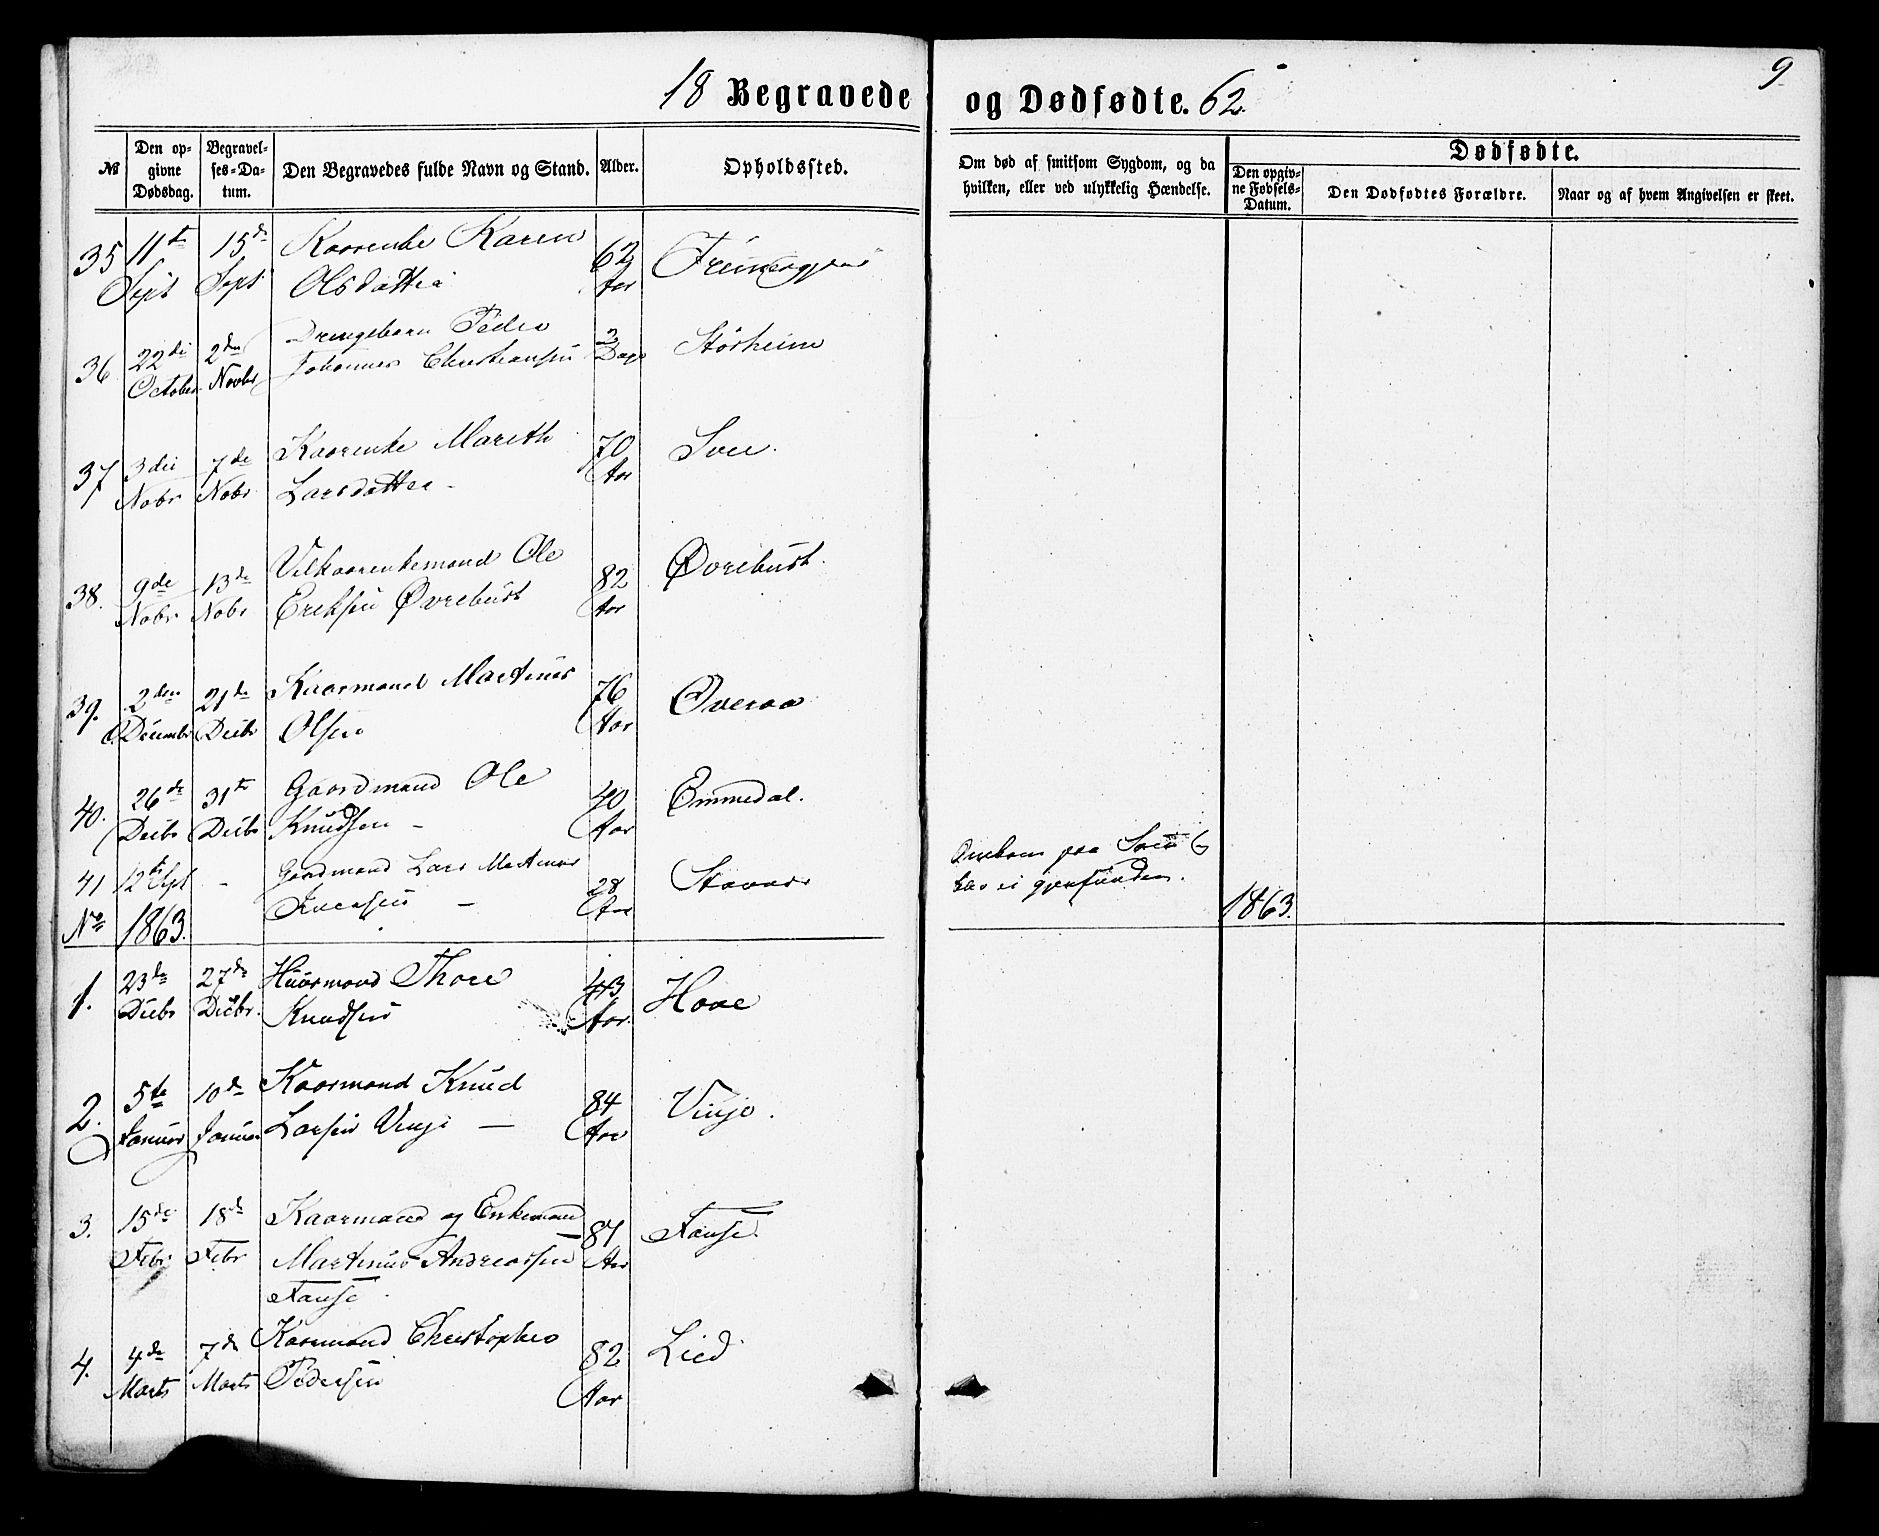 18 Begravede og Dødfødte. 62.
9
№
Den opgivne Dødsdag.
Begravelses-Datum.
Den Begravedes fulde Navn og Stand.
Alder.
Opholdssted.
Om død af smitsom Sygdom, og da hvilken, eller ved ulykkelig Hændelse.
Dødfødte.
Den opgivne Fødsels-Datum.
Den Dødfødtes Forældre.
Naar og af hvem Angivelsen er skeet.
35 11te 15de Kaarenke Karen 62
Sept Sept Olsdatter Aar
36 22de 2den Drengebarn Peder 2 Størheim
October Novbr Johannes Christiansen Dage
37 3die 7de Kaarenke Mareth 70 Svee.
Nobr Nobr Larsdatter - Aar
38. 9de 13de Vilkaarenkemand Ole 82 Øvrebust.
Nobr Nobr Eriksen Øvrebust Aar
39. 2den 21de Kaarmand Martinus 76 Øveraa
Decembr Decbr Olsen Aar
40. 26de 31te Gaardmand Ole 40 Emmedal.
Decbr Decbr Knudsen - Aar
41 12te Sept - Gaardmand Lars Martinus 28
Iversen - Aar
Omkom paa Søen &
ei gjenfunden.
No 1863. 1863.
1. 23de 27de Huusmand Thore 43 Hove
Decbr Decbr. Knudsen Aar.
2. 5te 10de Kaarmand Knud 84 Vinje.
Januar Januar Larsen Vinje - Aar
3. 15de 18de Kaarmand og Enkemand 81 Fause.
Febr Febr Martinus Andreassen Aar
Fause.
4. 4de 7de Kaarmand Christopher 82 Lied
Marts Marts Pedersen Aar